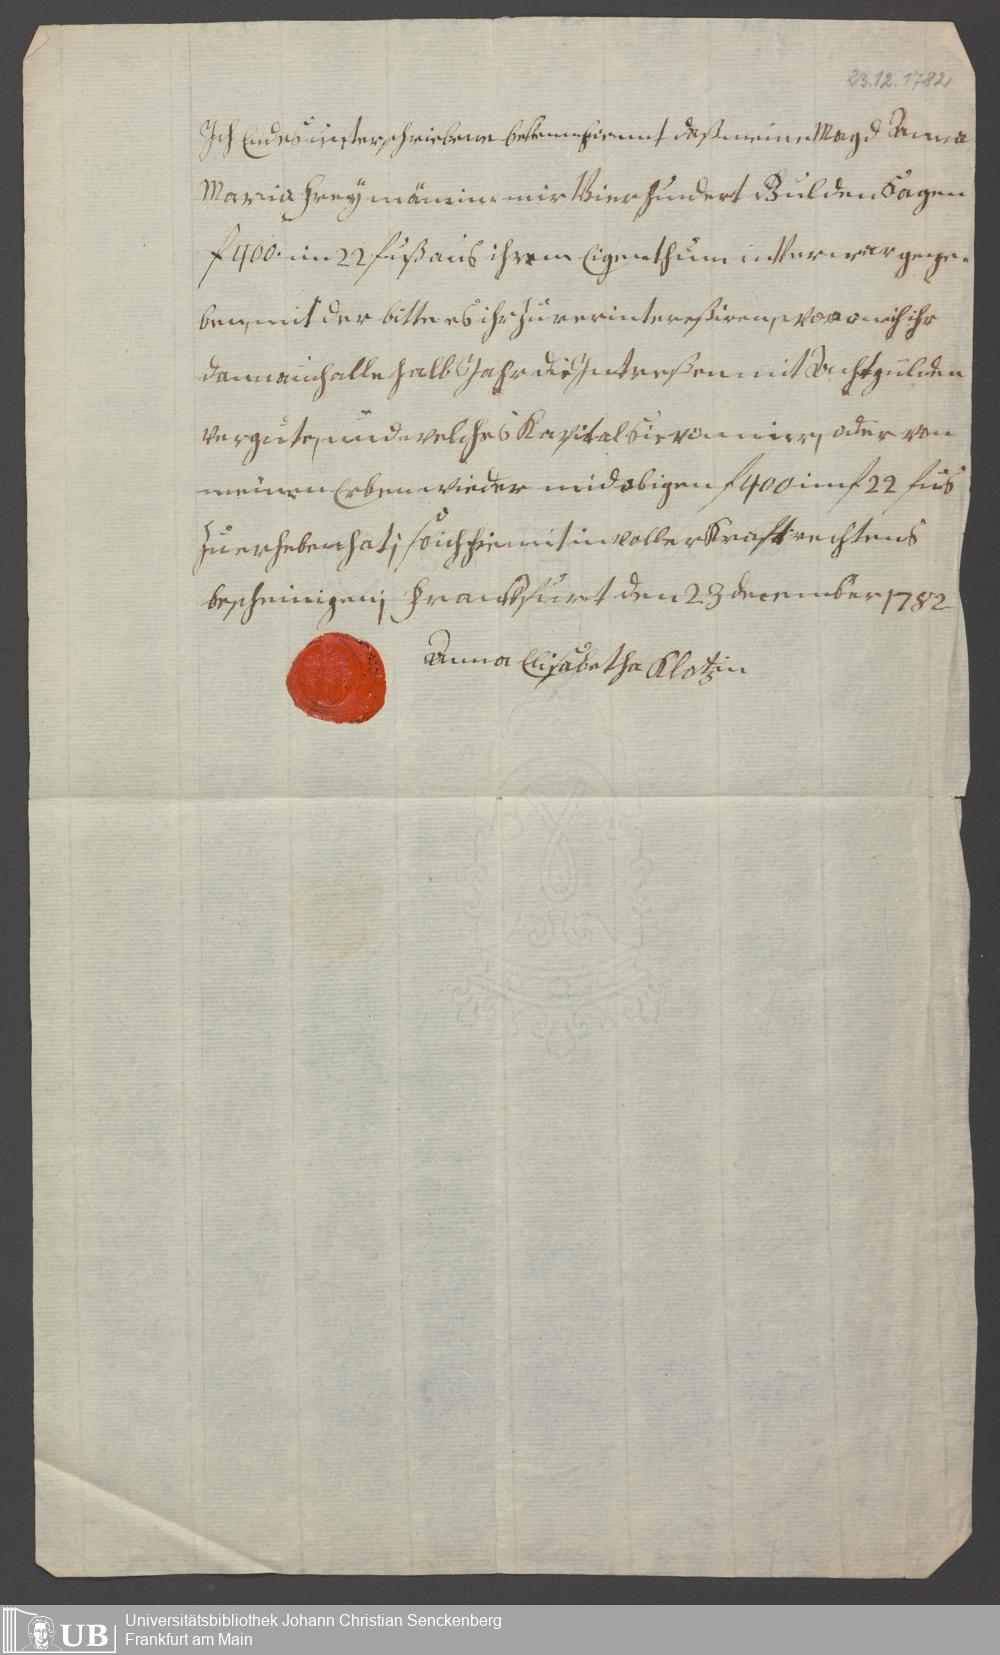 23.12.1782
Ich Endes unterschriebene bekenne hiermit daß meine Magd Anna
Maria Freymännin mir Vierhundert Gulden sagen
f 400. im 22 fuß aus ihrem Eigenthum in Verwar gege-
ben, mit der bitte es ihr zu verinteressiren, wovon ich ihr
dann auch alle halb Jahr die Intressen mit Acht gulden
vergute, und welches Kapital sie von mir, oder von
meinen Erben wieder mid obigen f 400 im f 22 fus
zu erheben hat; so ich hiemit in voller Kraft rechtens
bescheinigen; Franckfurt den 23 december 1782
Anna Elisabetha Klotzin
UB Universitätsbibliothek Johann Christian Senckenberg
Frankfurt am Main